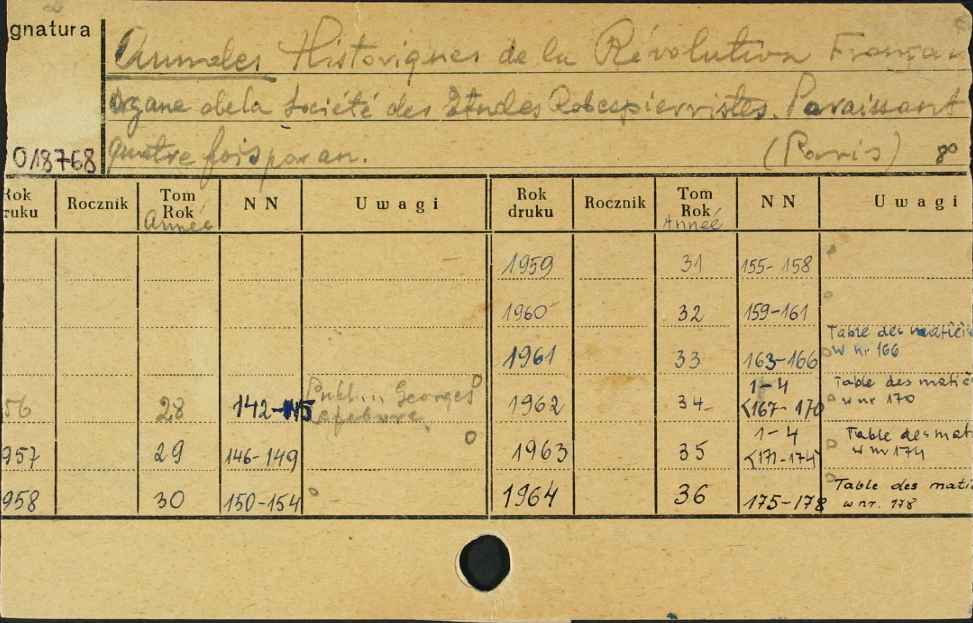 gnatura
Annales Historiques de la Révolution Françai
Organe de la Société des Etudes Robespierristes. Paraissant
018768 quatre fois par an. (Paris) 80
Rok druku Rocznik Tom Rok Année NN Uwagi Rok druku Rocznik Tom Rok Année NN Uwagi
1959 31 155-158
1960 32 159-161
1961 33 163-166 Table des matièr w nr 166
56 28 142-145 Publ. Georges Lefebvre, 1962 34 1-4 <167-170 Table des matiè w nr 170
957 29 146-149 1963 35 1-4 <171-174 Table des mat w nr 174
958 30 150-154 1964 36 175-178 Table des mati w nr. 178